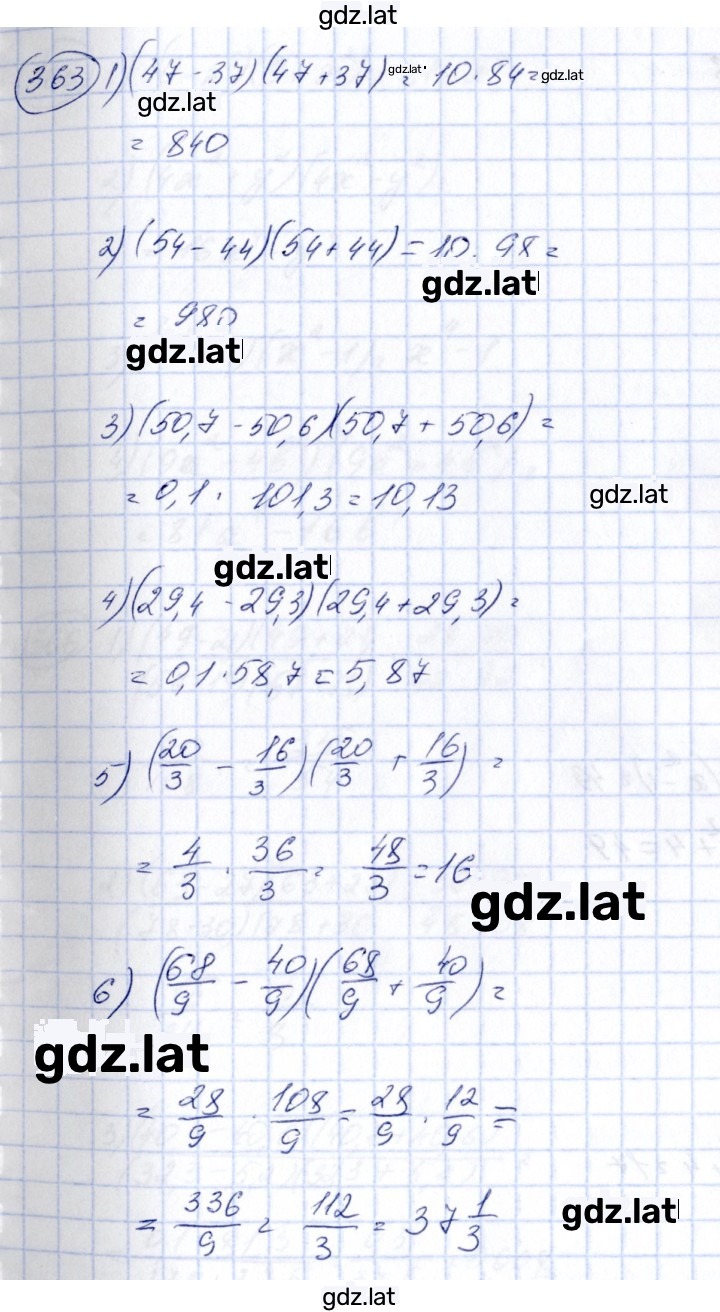 gdz.lat
363 1) (47 - 37) (47 + 37) gdz.lat = 10 · 84 = gdz.lat
gdz.lat
= 840
2) (54 - 44)(54 + 44) = 10 · 98 =
gdz.lat
= 980
gdz.lat
3) (50,7 - 50,6)(50,7 + 50,6) =
= 0,1 · 101,3 = 10,13 gdz.lat
gdz.lat
4) (29,4 - 29,3)(29,4 + 29,3) =
= 0,1 · 58,7 = 5,87
5) (20/3 - 16/3)(20/3 + 16/3) =
= 4/3 · 36/3 = 48/3 = 16
gdz.lat
6) (68/9 - 40/9)(68/9 + 40/9) =
gdz.lat
= 28/9 · 108/9 = 28/9 · 12/9 =
= 336/9 = 112/3 = 37 1/3 gdz.lat
gdz.lat